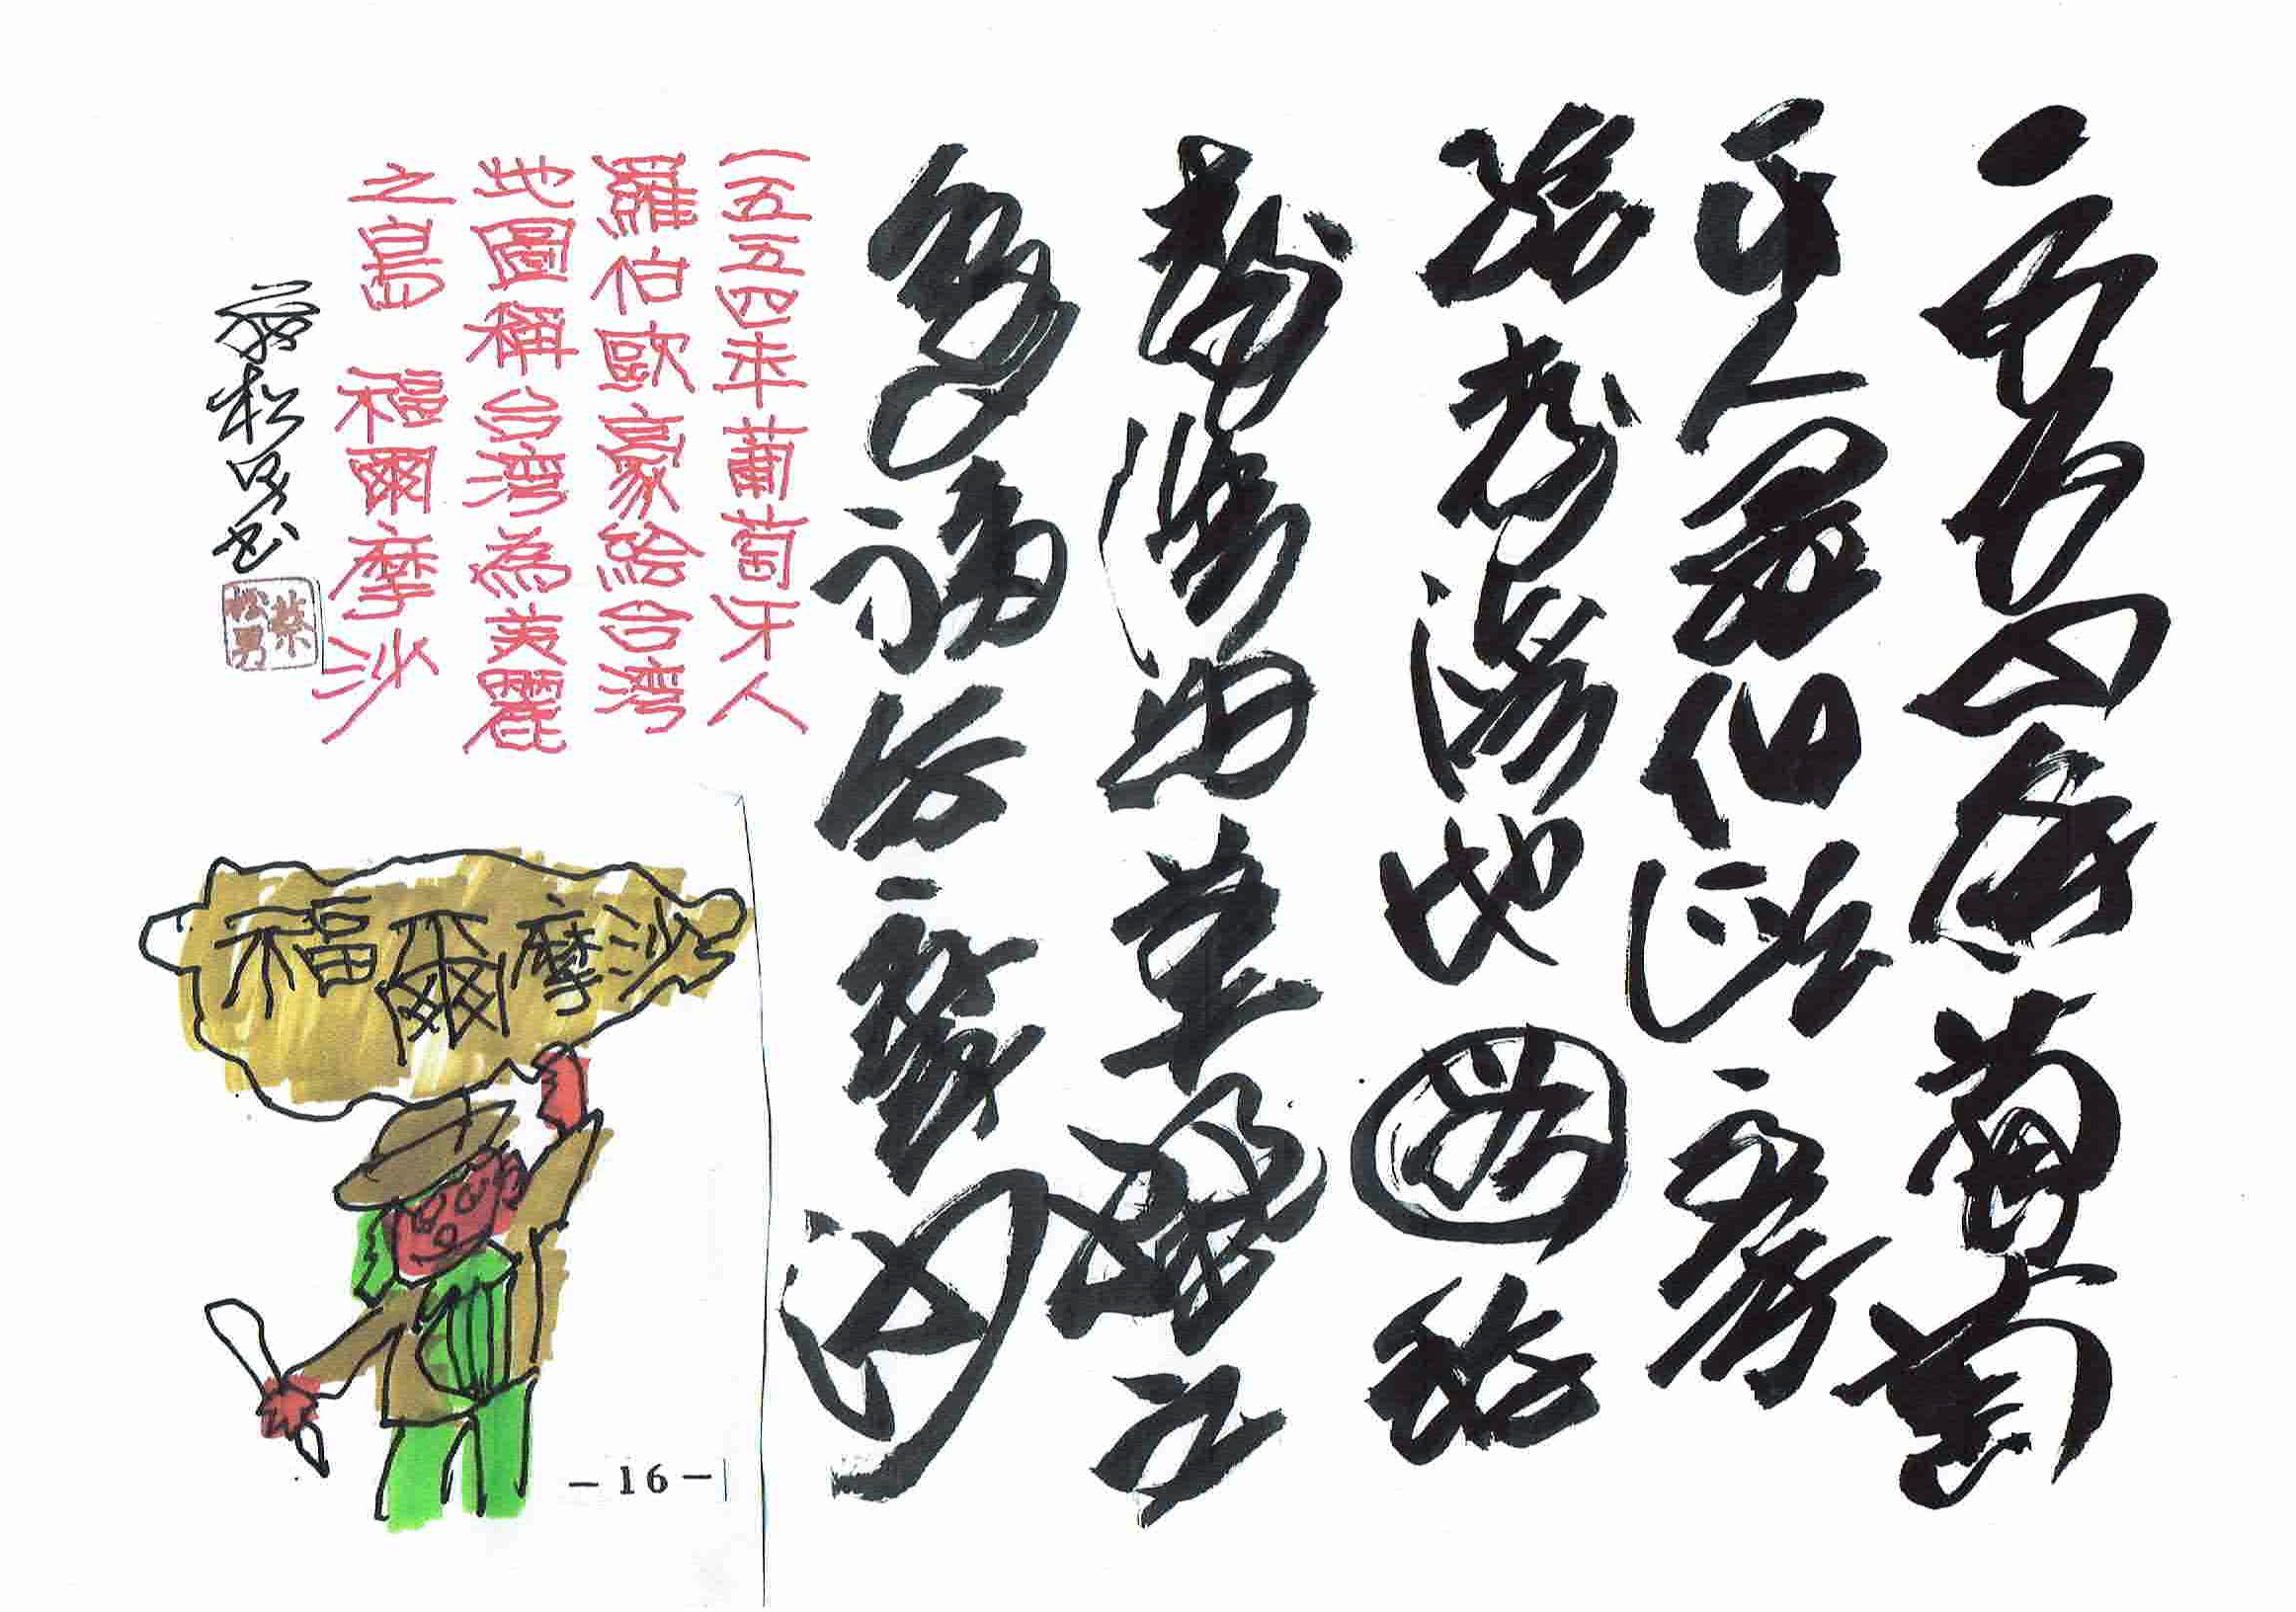 一五五四年葡萄
牙人羅伯歐豪
繪臺灣地圖稱
臺灣為美麗之
島福爾摩沙
一五五四年葡萄牙人
羅伯歐豪絵台湾
地圖稱台湾為美麗
之島 福爾摩沙
蔡松男书
蔡松男
福爾摩沙
-16-